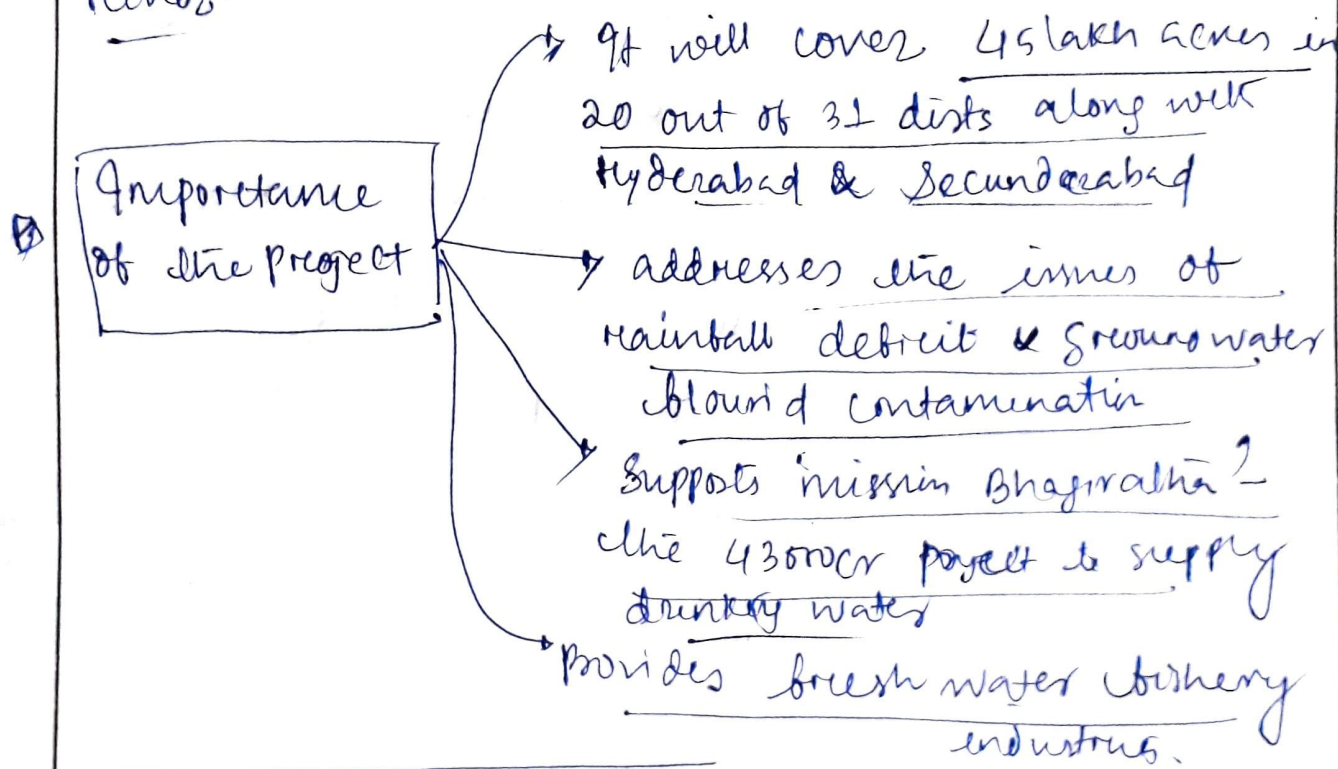 It will cover 45 lakh acres in
20 out of 31 dists along with
Hyderabad & Secunderabad
Importance
of the Project
addresses the issues of
rainfall deficit & groundwater
flourid contamination
Supports 'mission Bhagiratha' -
the 43000cr poject to supply
drinking water
Provides fresh water fishery
industries.